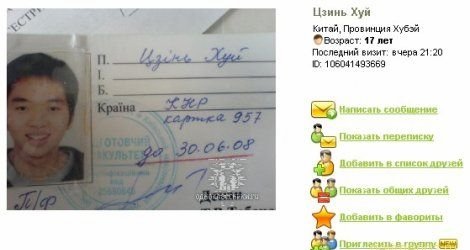 П. Цзінь Хуй
І.
Б.
Країна КНР
картка 957
до 30.06.08
П/Ф
ГОТОВЧИЙ
АКУЛЬТЕТ
odnoklassniki.ru
Цзинь Хуй
Китай, Провинция Хубэй
Возраст: 17 лет
Последний визит: вчера 21:20
ID: 106041493669
Написать сообщение
Показать переписку
Добавить в список друзей
Показать общих друзей
Добавить в фавориты
Пригласить в группу NEW